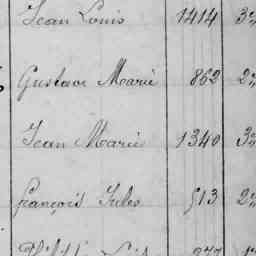 Jean Louis 1414 3
Gustave Marie 862 2
Jean Marie 1340 3
François Jules 513 2